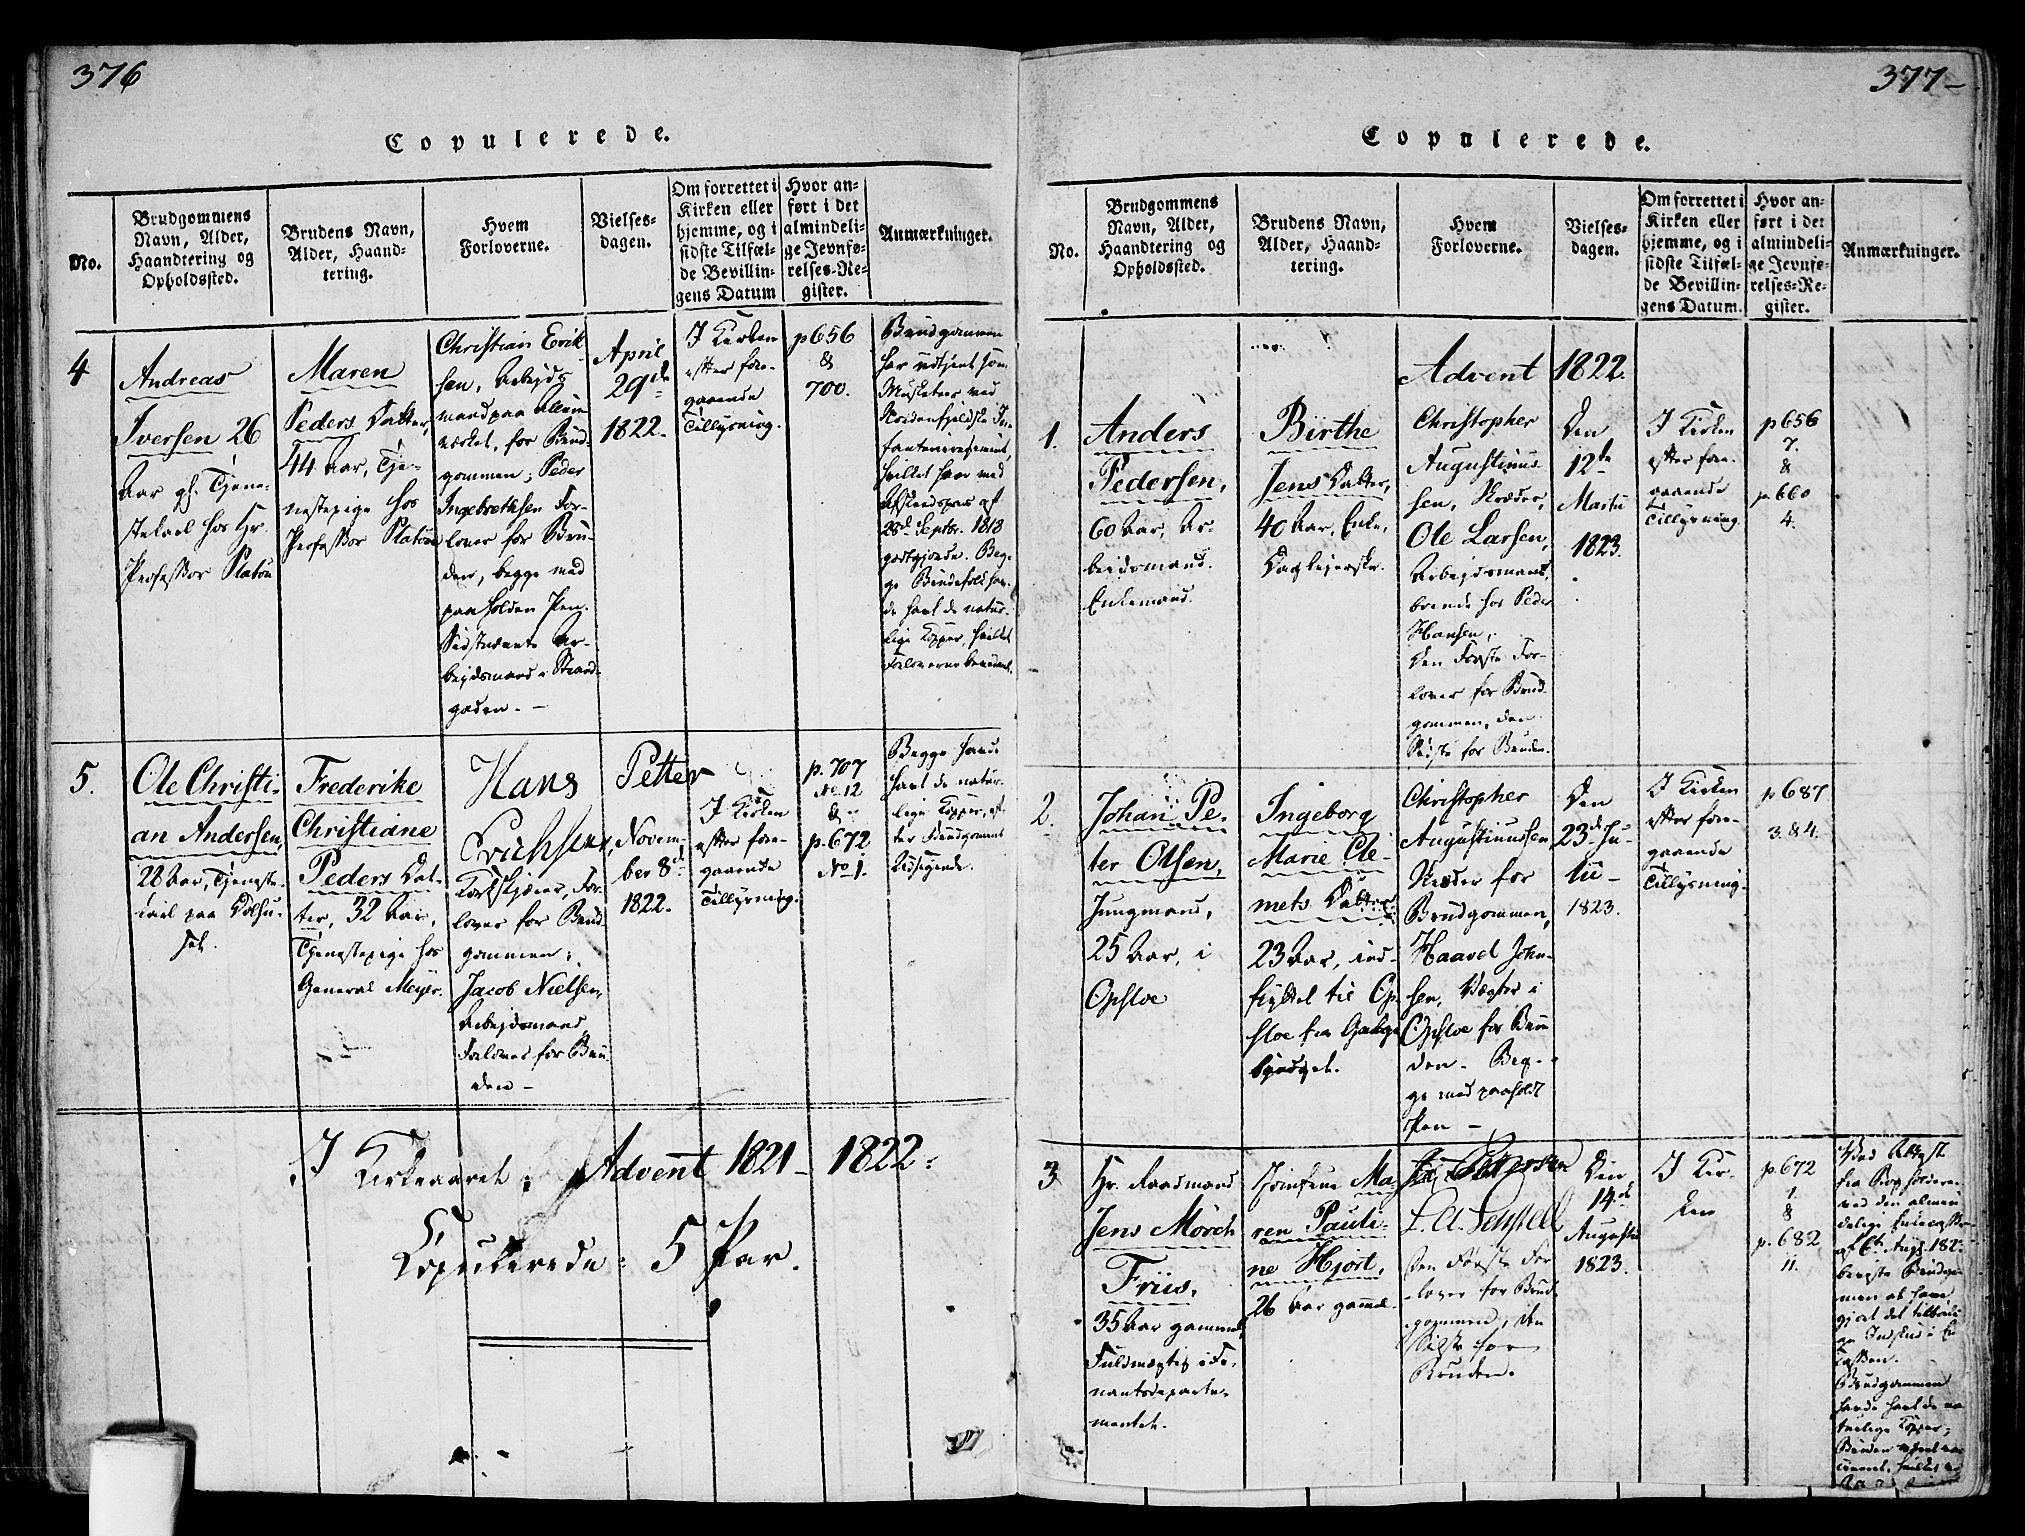 376
Copulerede.
No.
Brudgommens
Navn, Alder,
Haandtering og
Opholdssted.
Brudens Navn,
Alder, Haand-
tering.
Hvem
Forloverne.
Vielses-
dagen.
Om forrettet i
Kirken eller
hjemme, og i
sidste Tilfæl-
de Bevillin-
gens Datum
Hvor an-
ført i det
almindeli-
ge Jevnfø-
relses-Re-
gister.
Anmærkninger.
4
Andreas
Iversen 26
Aar gl. Tjene-
stekarl hos Hr.
Professor Platou
Maren
Peders Datter,
44 Aar, Tje-
nestepige hos
Professor Platou
Christian Erik
sen, Arbejds
mand paa Allun
værket, for Brud-
gommen; Peder
Ingebrethsen For-
lover for Bru-
den, begge med
paaholden Pen.
Sidstnævnte Ar-
bejdsmand i Strand-
gaden. –
April
29de
1822.
I Kirken
efter fore-
gaaende
Tillysning.
p 656
&
700.
Brudgommen
har udtjent som
Musketeer ved
Nordenfjeldske In-
fanterieregiment,
hvilket han med
Afskedspas af
28d Septbr. 1818
godtgjorde. Beg-
ge Brudefolk hav-
de havt de natur-
lige Kopper, hvilket
Forloverne bevidnet.
5.
Ole Christi-
an Andersen,
28 Aar, Tjeneste-
karl paa
Frederike
Christiane
Peders Dat-
ter, 32 Aar,
Tjenestepige hos
General Meyer.
Hans Petter
Erichsen,
Forlover for Brud-
gommen;
Jacob Nielsen,
Arbejdsmand
Forlover for Bru
den –
Novem-
ber 8d
1822.
I Kirken
efter fore-
gaaende
Tillysning.
p. 707
No. 12
&
p. 672
No 1.
Begge havde
havt de natur-
lige Kopper, ef-
ter Brudgommens
Udsigende.
I Kirkeaaret: Advent 1821 – 1822:
Kopulerede: 5 Par.
377–
Copulerede.
No.
Brudgommens
Navn, Alder,
Haandtering og
Opholdssted.
Brudens Navn,
Alder, Haand-
tering.
Hvem
Forloverne.
Vielses-
dagen.
Om forrettet i
Kirken eller
hjemme, og i
sidste Tilfæl-
de Bevillin-
gens Datum.
Hvor an-
ført i det
almindeli-
ge Jevnfø-
relses-Re-
gister.
Anmærkninger.
Advent 1822.
1.
Anders
Pedersen,
60 Aar, Ar
beidsmand.
Enkemand.
Birthe
Jens Datter,
40 Aar, Enke,
Daglejerske.
Christopher
Augustinus-
sen, Skræder,
Ole Larsen,
Arbejdsmand,
boende hos Peder
Hansen,
Den Første For-
lover for Brud-
gommen, den
Sidste for Bruden.
Den
12te
Martii
1823.
I Kirken
efter fore-
gaaende
Tillysning
p 656
7.
&
p 660
4.
2.
Johan Pe-
ter Olsen,
Jungmand,
25 Aar, i
Opsloe
Ingeborg
Marie Cle-
mets Datter
23 Aar, ind-
flyttet til Op-
sloe fra Galge
bjerget.
Christopher
Augustinussen,
Skræder for
Brudgommen,
Haavel John-
sen, Vægter i
Opsloe for Bru
den. Beg-
ge med paaholdt
Pen –
Den
23de Ju-
lii –
1823.
I Kirken
efter fore-
gaaende
Tillysning.
p 687
3. & 4.
3
Hr. Raadmand
Jens Mørch
Friis,
35 Aar gammel,
Fuldmægtig i Fi-
nantsdeparte-
mentet.
Jomfrue Ma-
ren Pauli-
ne Hjort,
26 Aar gammel.
Den Første For
lover for Brud-
gommen, den
Sidste for
Bruden.
Den
14de
Augusti
1823.
I Kir-
ken
p. 672
1.
&
p. 682
11.
Brudgommen
havde havt de na
turlige Kopper;